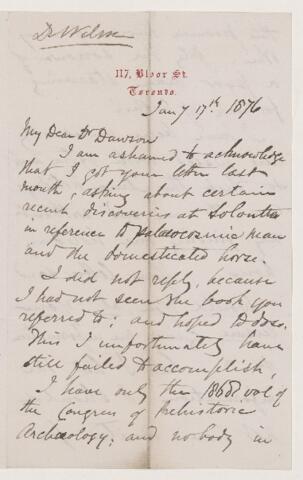 Dr Wilson
117, Bloor St.
Toronto.
Jany 17th 1876
My Dear Dr Dawson
I am ashamed to acknowledge
that I got your letter last
month, asking about certain
recent discoveries at Solutré
in reference to palaeocosmic man
and the domesticated horse.
I did not reply, because
I had not seen the book you
referred to; and hoped to do so.
This I unfortunately have
still failed to accomplish.
I have only the 1868 vol of
the Congress of prehistoric
Archæology; and nobody in